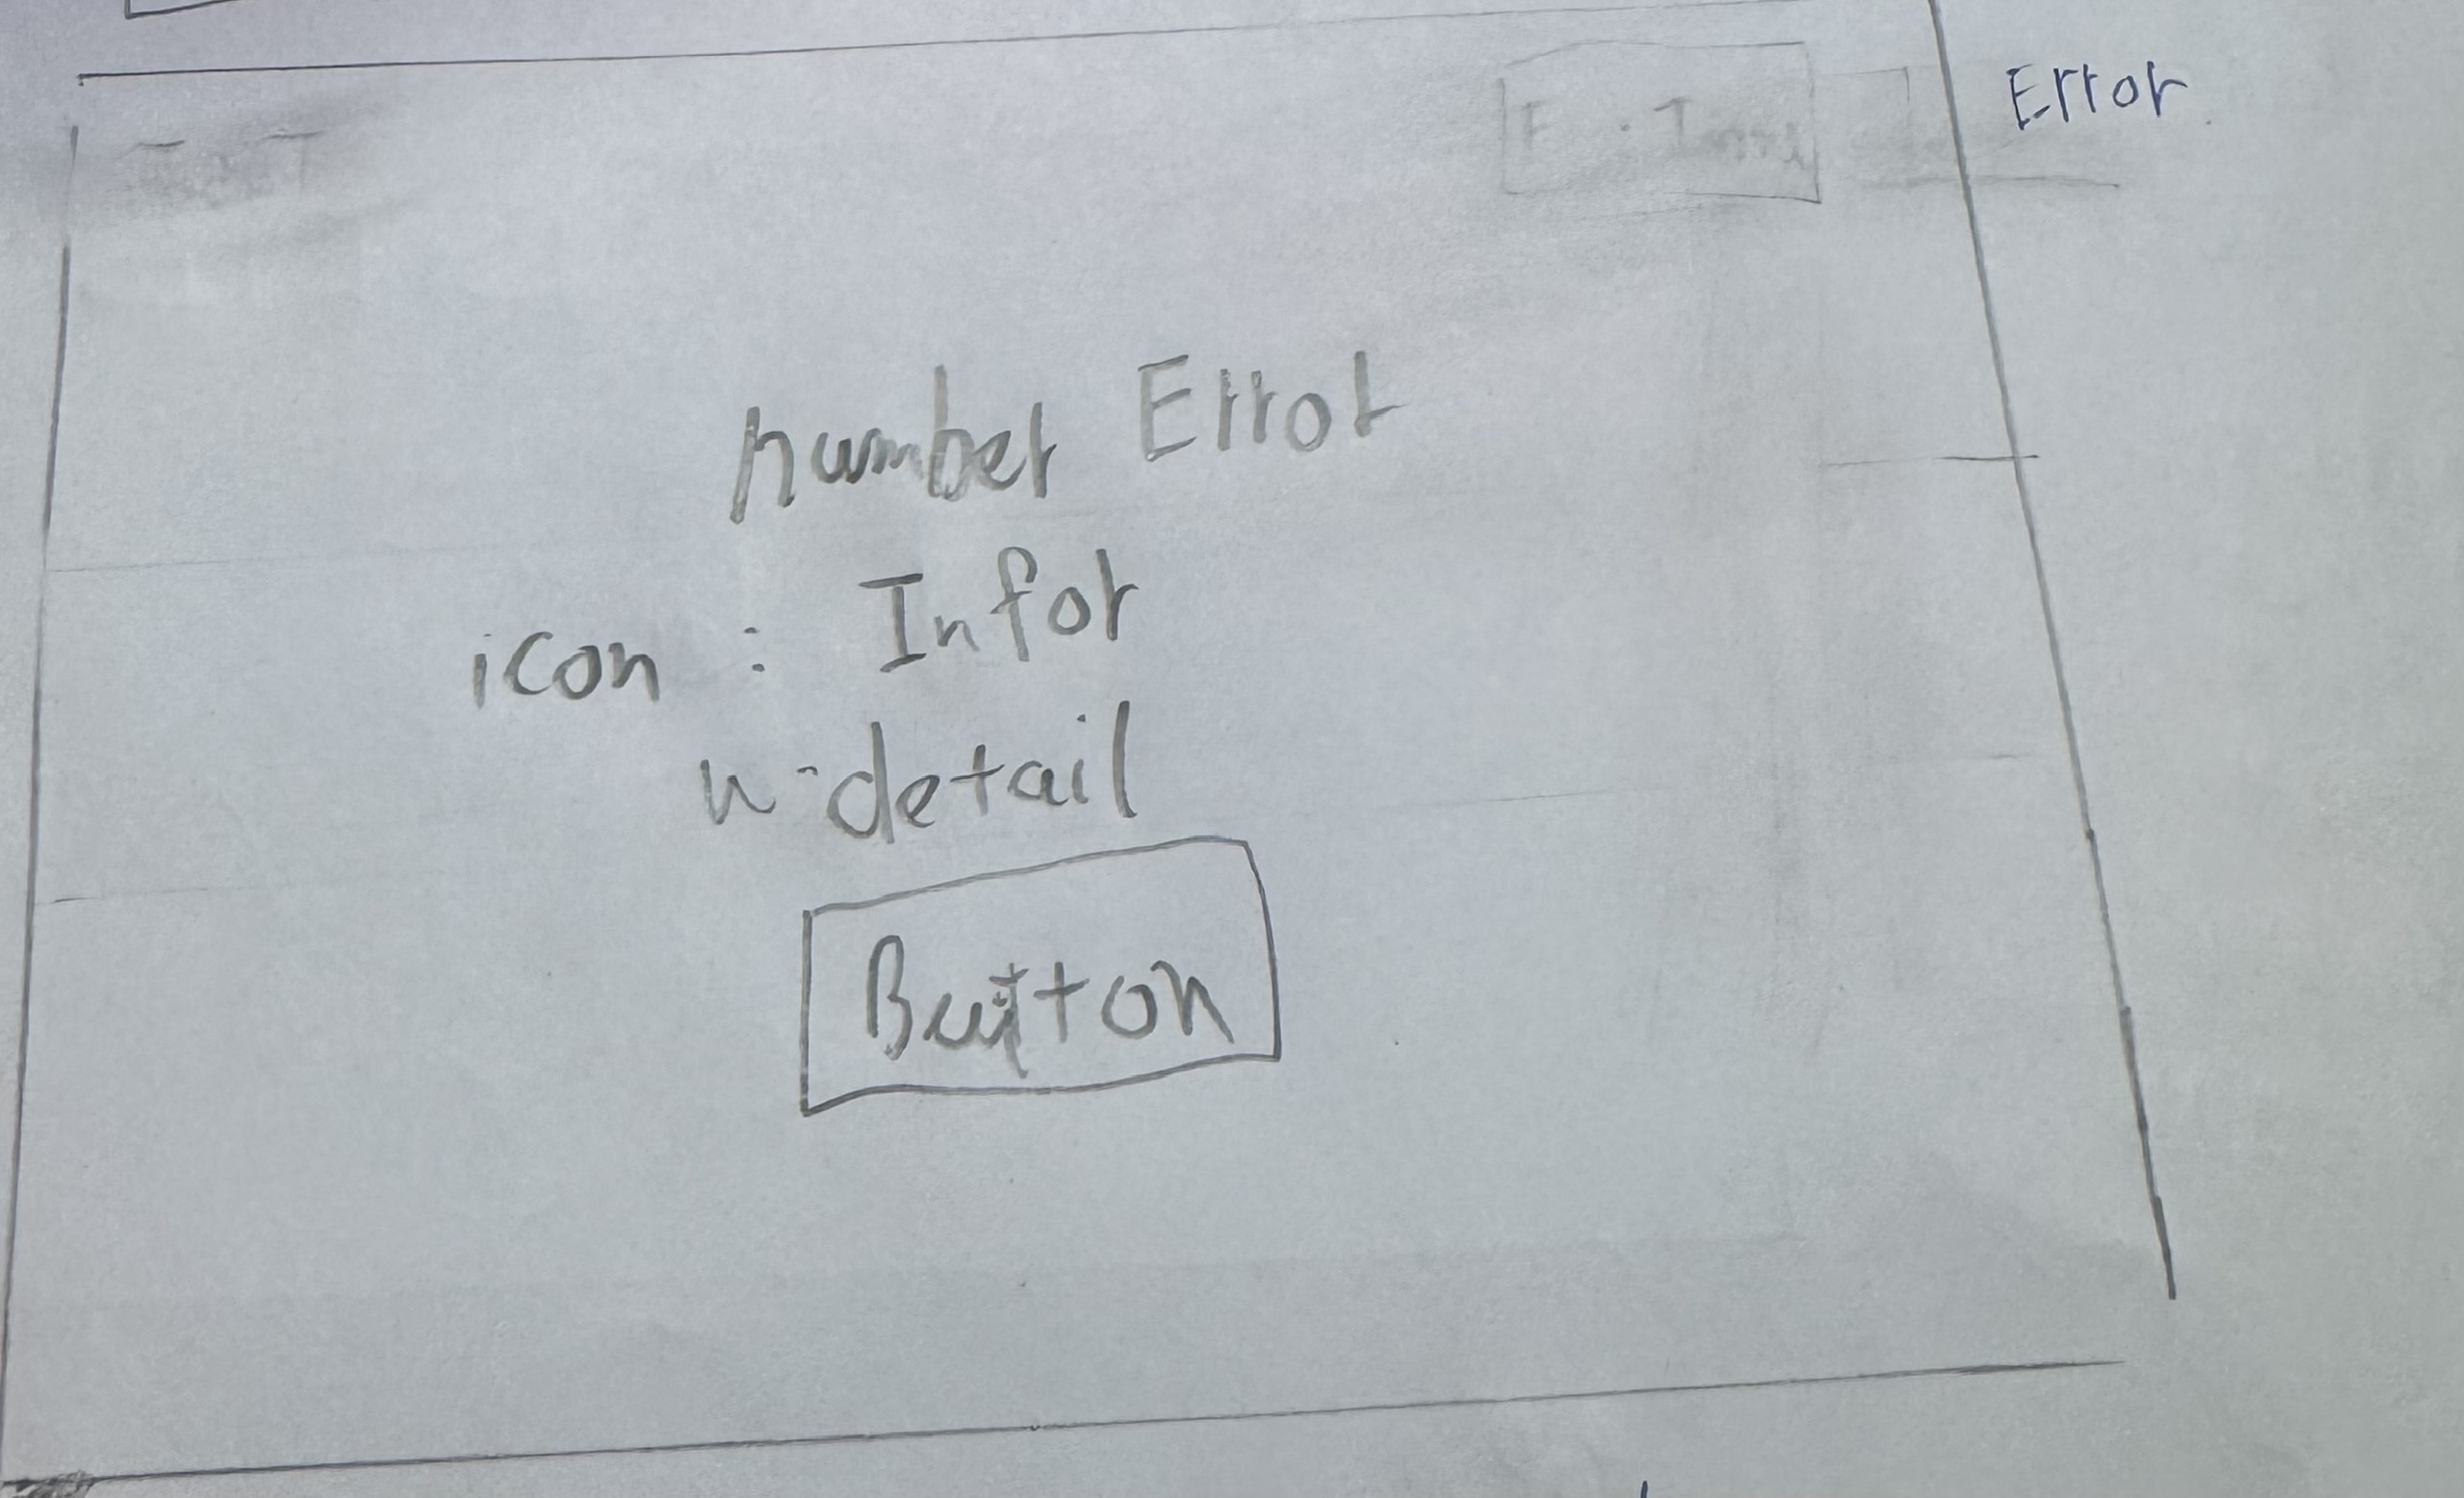 Error
number Error
icon : Infor
n-detail
Button